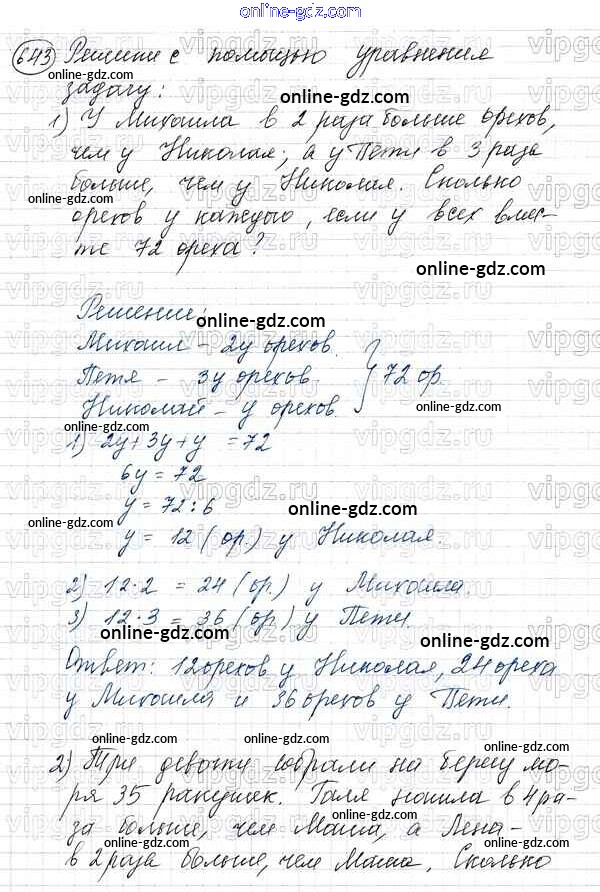 online-gdz.com
643 Решите с помощью уравнения
online-gdz.com
задачу: online-gdz.com
1) У Михаила в 2 раза больше орехов,
чем у Николая, а у Пети в 3 раза
больше, чем у Николая. Сколько
online-gdz.com online-gdz.com
орехов у каждого, если у всех вмес-
те 72 ореха?
online-gdz.com
Решение:
online-gdz.com
Михаил – 2у орехов.
Петя – 3у орехов. 72 ор.
Николай – у орехов.
online-gdz.com
1) 2у+3у+у = 72
6у = 72
у = 72 : 6
online-gdz.com
online-gdz.com
у = 12 (ор.) у Николая.
2) 12·2 = 24 (ор.) у Михаила.
3) 12·3 = 36 (ор.) у Пети.
online-gdz.com online-gdz.com
Ответ: 12 орехов у Николая, 24 ореха
у Михаиля и 36 орехов у Пети.
online-gdz.com
online-gdz.com online-gdz.com
2) Три девочки собрали на берегу мо-
ря 35 ракушек. Галя нашла в 4 ра-
за больше, чем Маша, а Лена –
online-gdz.com online-gdz.com
в 2 раза больше, чем Маша. Сколько
online-gdz.com